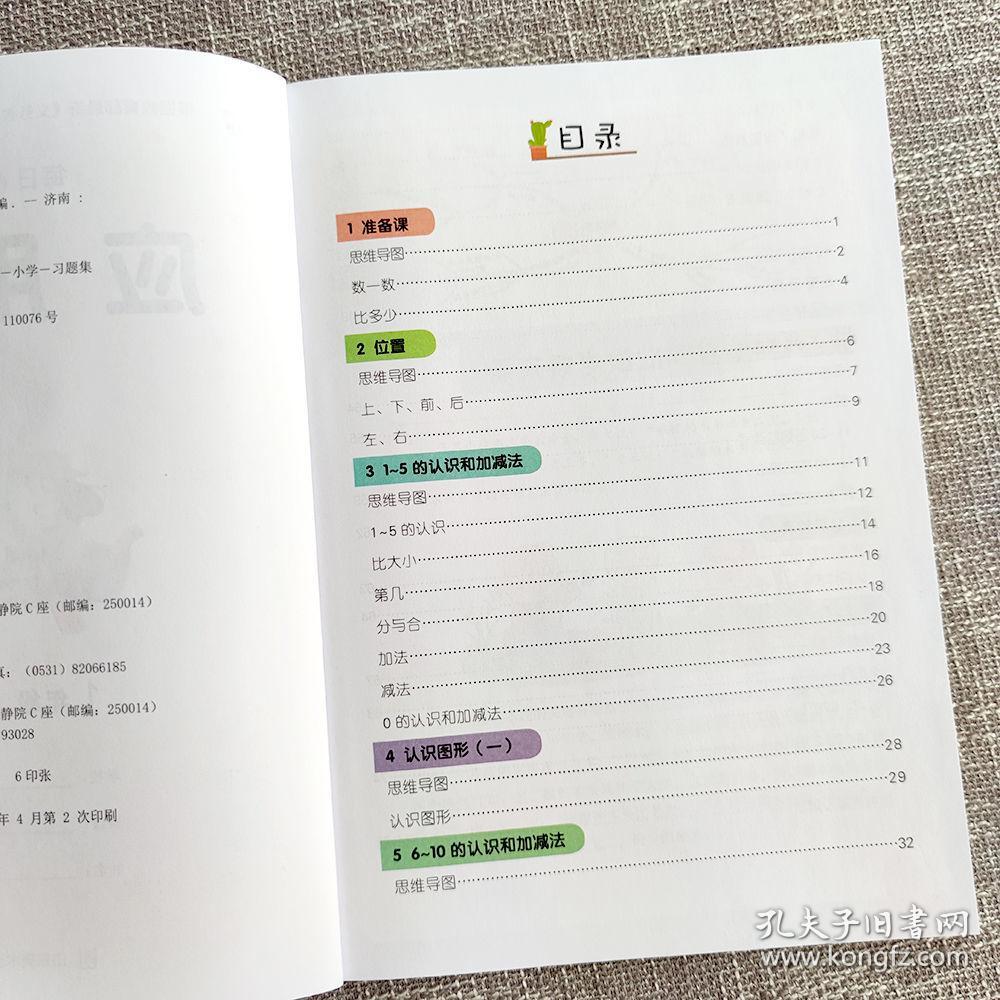 编. -- 济南 :
-小学-习题集
110076 号
静院 C 座（邮编：250014）
真：（0531）82066185
静院 C 座（邮编：250014）
93028
6 印张
年 4 月第 2 次印刷
目录
1 准备课
思维导图 1
数一数 2
比多少 4
2 位置
思维导图 6
上、下、前、后 7
左、右 9
3 1~5 的认识和加减法
思维导图 11
1~5 的认识 12
比大小 14
第几 16
分与合 18
加法 20
减法 23
0 的认识和加减法 26
4 认识图形（一）
思维导图 28
认识图形 29
5 6~10 的认识和加减法
思维导图 32
孔夫子旧書网
www.kongfz.com